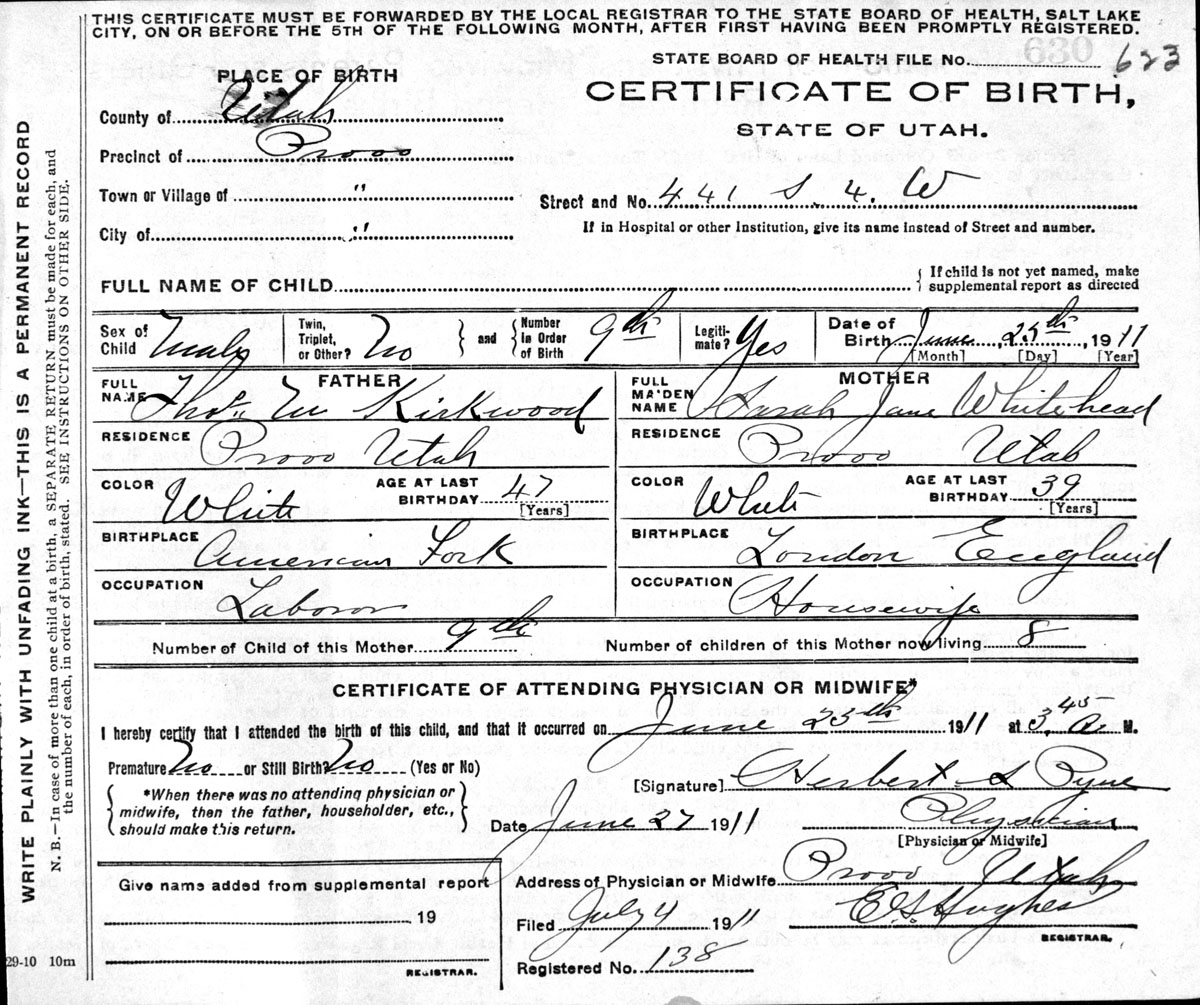 THIS CERTIFICATE MUST BE FORWARDED BY THE LOCAL REGISTRAR TO THE STATE BOARD OF HEALTH, SALT LAKE
CITY, ON OR BEFORE THE 5TH OF THE FOLLOWING MONTH, AFTER FIRST HAVING BEEN PROMPTLY REGISTERED.
STATE BOARD OF HEALTH FILE No. 623
PLACE OF BIRTH
CERTIFICATE OF BIRTH,
STATE OF UTAH.
County of Utah
Precinct of Provo
Town or Village of "
Street and No. 441 S. 4. W
City of "
If in Hospital or other Institution, give its name instead of Street and number.
FULL NAME OF CHILD
{ If child is not yet named, make
supplemental report as directed
Sex of Child Male
Twin, Triplet, or Other? No } and { Number in Order of Birth 9th
Legiti-mate? Yes
Date of Birth June 25th, 1911
[Month] [Day] [Year]
FATHER
FULL NAME Thos M Kirkwood
MOTHER
FULL MAIDEN NAME Sarah Jane Whitehead
RESIDENCE Provo Utah
RESIDENCE Provo Utah
COLOR White AGE AT LAST BIRTHDAY 47 [Years]
COLOR White AGE AT LAST BIRTHDAY 39 [Years]
BIRTHPLACE American Fork
BIRTHPLACE London England
OCCUPATION Laboror
OCCUPATION Housewife
Number of Child of this Mother 9th
Number of children of this Mother now living 8
CERTIFICATE OF ATTENDING PHYSICIAN OR MIDWIFE*
I hereby certify that I attended the birth of this child, and that it occurred on June 25th 1911 at 3.45 A. M.
Premature No or Still Birth No (Yes or No)
[Signature] Herbert S Pyne
{ *When there was no attending physician or
midwife, then the father, householder, etc.,
should make this return. }
Date June 27 1911 Physician
[Physician or Midwife]
Give name added from supplemental report
19
REGISTRAR.
Address of Physician or Midwife Provo Utah
Filed July 4 1911 E. S. Hughes
REGISTRAR.
Registered No. 138
29-10 10m
WRITE PLAINLY WITH UNFADING INK—THIS IS A PERMANENT RECORD
N. B.—In case of more than one child at a birth, a SEPARATE RETURN must be made for each, and
the number of each, in order of birth, stated. SEE INSTRUCTIONS ON OTHER SIDE.